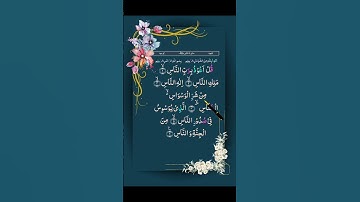 قُلْ اَعُوْذُ بِرَبِّ النَّاسِ
مَلِكِ النَّاسِ اِلٰهِ النَّاسِ
مِنْ شَرِّ الْوَسْوَاسِ
الَّذِیْ یُوَسْوِسُ
فِیْ صُدُوْرِ النَّاسِ مِنَ
الْجِنَّةِ وَ النَّاسِ